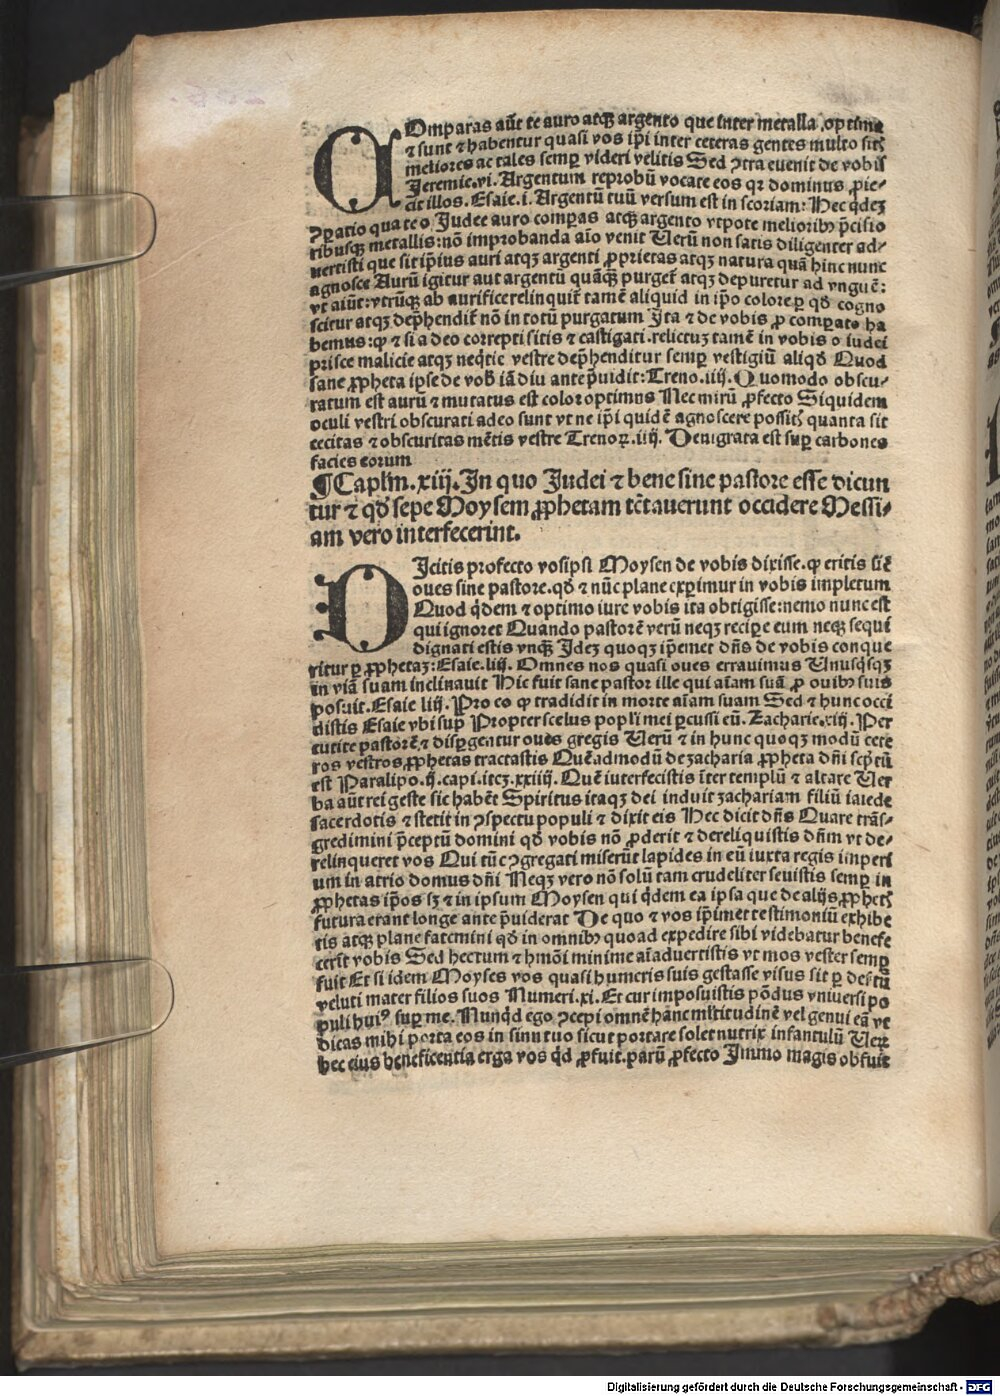 COmparas aūt te auro atqꝫ argento que inter metalla optima
⁊ sunt ⁊ habentur quasi vos ip̄i inter ceteras gentes multo sitis
meliores ac tales semꝑ videri velitis Sed ꝯtra euenit de vobis
Jeremie.vi. Argentum reprobū vocate eos qꝛ dominus ꝓie-
cit illos. Esaie.i. Argentū tuū versum est in scoriam: Hec qͥdeꝫ
ꝯꝑatio qua te o Judee auro comꝑas atqꝫ argento vtpote melioribꝰ p̄cisio
ribusqꝫ metallis: nō improbanda aīo venit Uerū non satis diligenter ad-
uertisti que sit ip̄ius auri atqꝫ argenti ꝓprietas atqꝫ natura quā hinc nunc
agnosce Aurū igitur aut argentū quāqꝫ purget̄ atqꝫ depuretur ad vnguē:
vt aiūt: vtrūqꝫ ab aurifice relinquit̄ tamē aliquid in ip̄o colore ꝑ qd̄ cogno
scitur atqꝫ dep̄hendit̄ nō in totū purgatum Ita ⁊ de vobis ꝓ comꝑato ha
bemus: ꝙ ⁊ si a deo correpti sitis ⁊ castigati. relictuꝫ tamē in vobis o iudei
prisce malicie atqꝫ neq̄tie vestre dep̄henditur semꝑ vestigiū aliqd̄ Quod
sane ꝓpheta ipse de vob̄ iā diu ante p̄uidit: Treno.iiij. Quomodo obscu-
ratum est aurū ⁊ mutatus est color optimus Nec mirū ꝓfecto Siquidem
oculi vestri obscurati adeo sunt vt ne ip̄i quidē agnoscere possitis quanta sit
cecitas ⁊ obscuritas mētis vestre Trenoꝝ.iiij. Denigrata est suꝑ carbones
facies eorum
¶ Caplm̄.xiij. In quo Judei ⁊ bene sine pastore esse dicun
tur ⁊ qd̄ sepe Moysem ꝓphetam tētauerunt occidere Messi-
am vero interfecerint.
DIcitis profecto vosipsi Moysen de vobis dixisse. ꝙ eritis sic̄
oues sine pastore. qd̄ ⁊ nūc plane exꝑimur in vobis impletum
Quod qͥdem ⁊ optimo iure vobis ita obtigisse: nemo nunc est
qui ignoret Quando pastorē verū neqꝫ reciꝑe eum neqꝫ sequi
dignati estis vnqꝫ̄ Ideꝫ quoqꝫ ip̄emet dn̄s de vobis conque
ritur ꝑ ꝓphetaꝫ: Esaie.liij. Omnes nos quasi oues errauimus Unusqͥsqꝫ
in viā suam inclinauit Hic fuit sane pastor ille qui aīam suā ꝓ ouibꝰ suis
posuit. Esaie liij. Pro eo ꝙ tradidit in morte aīam suam Sed ⁊ hunc occi
distis Esaie vbi supꝛ Propter scelus popl̄i mei ꝑcussi eū. Zacharie.xiij. Per
cutite pastorē, ⁊ disꝑgentur oues gregis Uerū ⁊ in hunc quoqꝫ modū cete
ros vestros ꝓphetas tractastis Quēadmodū de zacharia ꝓpheta dn̄i scp̄tū
est Paralipo.ij. capi. iteꝫ.xxiiij. Quē interfecistis īter templū ⁊ altare Uer
ba aūt rei geste sic habēt Spiritus itaqꝫ dei induit zachariam filiū ioiede
sacerdotis ⁊ stetit in ꝯspectu populi ⁊ dixit eis Hec dicit dn̄s Quare trās-
gredimini p̄ceptū domini qd̄ vobis nō ꝓderit ⁊ dereliquistis dn̄m vt de-
relinqueret vos Qui tūc ꝯgregati miserūt lapides in eū iuxta regis imperi
um in atrio domus dn̄i Neqꝫ vero nō solū tam crudeliter seuistis semꝑ in
ꝓphetas ip̄os sꝫ ⁊ in ipsum Moysen qui qͥdem ea ipsa que de alijs ꝓphetis
futura erant longe ante p̄uiderat De quo ⁊ vos ip̄imet testimoniū exhibe
tis atqꝫ plane fatemini qd̄ in omnibꝰ quoad expedire sibi videbatur benefe
cerit vobis Sed hec tum ⁊ hmōi minime aīaduertistis vt mos vester semꝑ
fuit Et si idem Moyses vos quasi humeris suis gestasse visus sit ꝑ desertū
veluti mater filios suos Numeri.xi. Et cur imposuistis pōdus vniuersi po
puli huiꝰ suꝑ me. Nunqͥd ego ꝯcepi omnē hanc ml̄titudinē vel genui eā vt
dicas mihi porta eos in sinu tuo sicut portare solet nutrix infantulū Ueꝝ
hec eius beneficentia erga vos qͥd ꝓfuit. parū ꝓfecto Immo magis obfuit
Digitalisierung gefördert durch die Deutsche Forschungsgemeinschaft - DFG